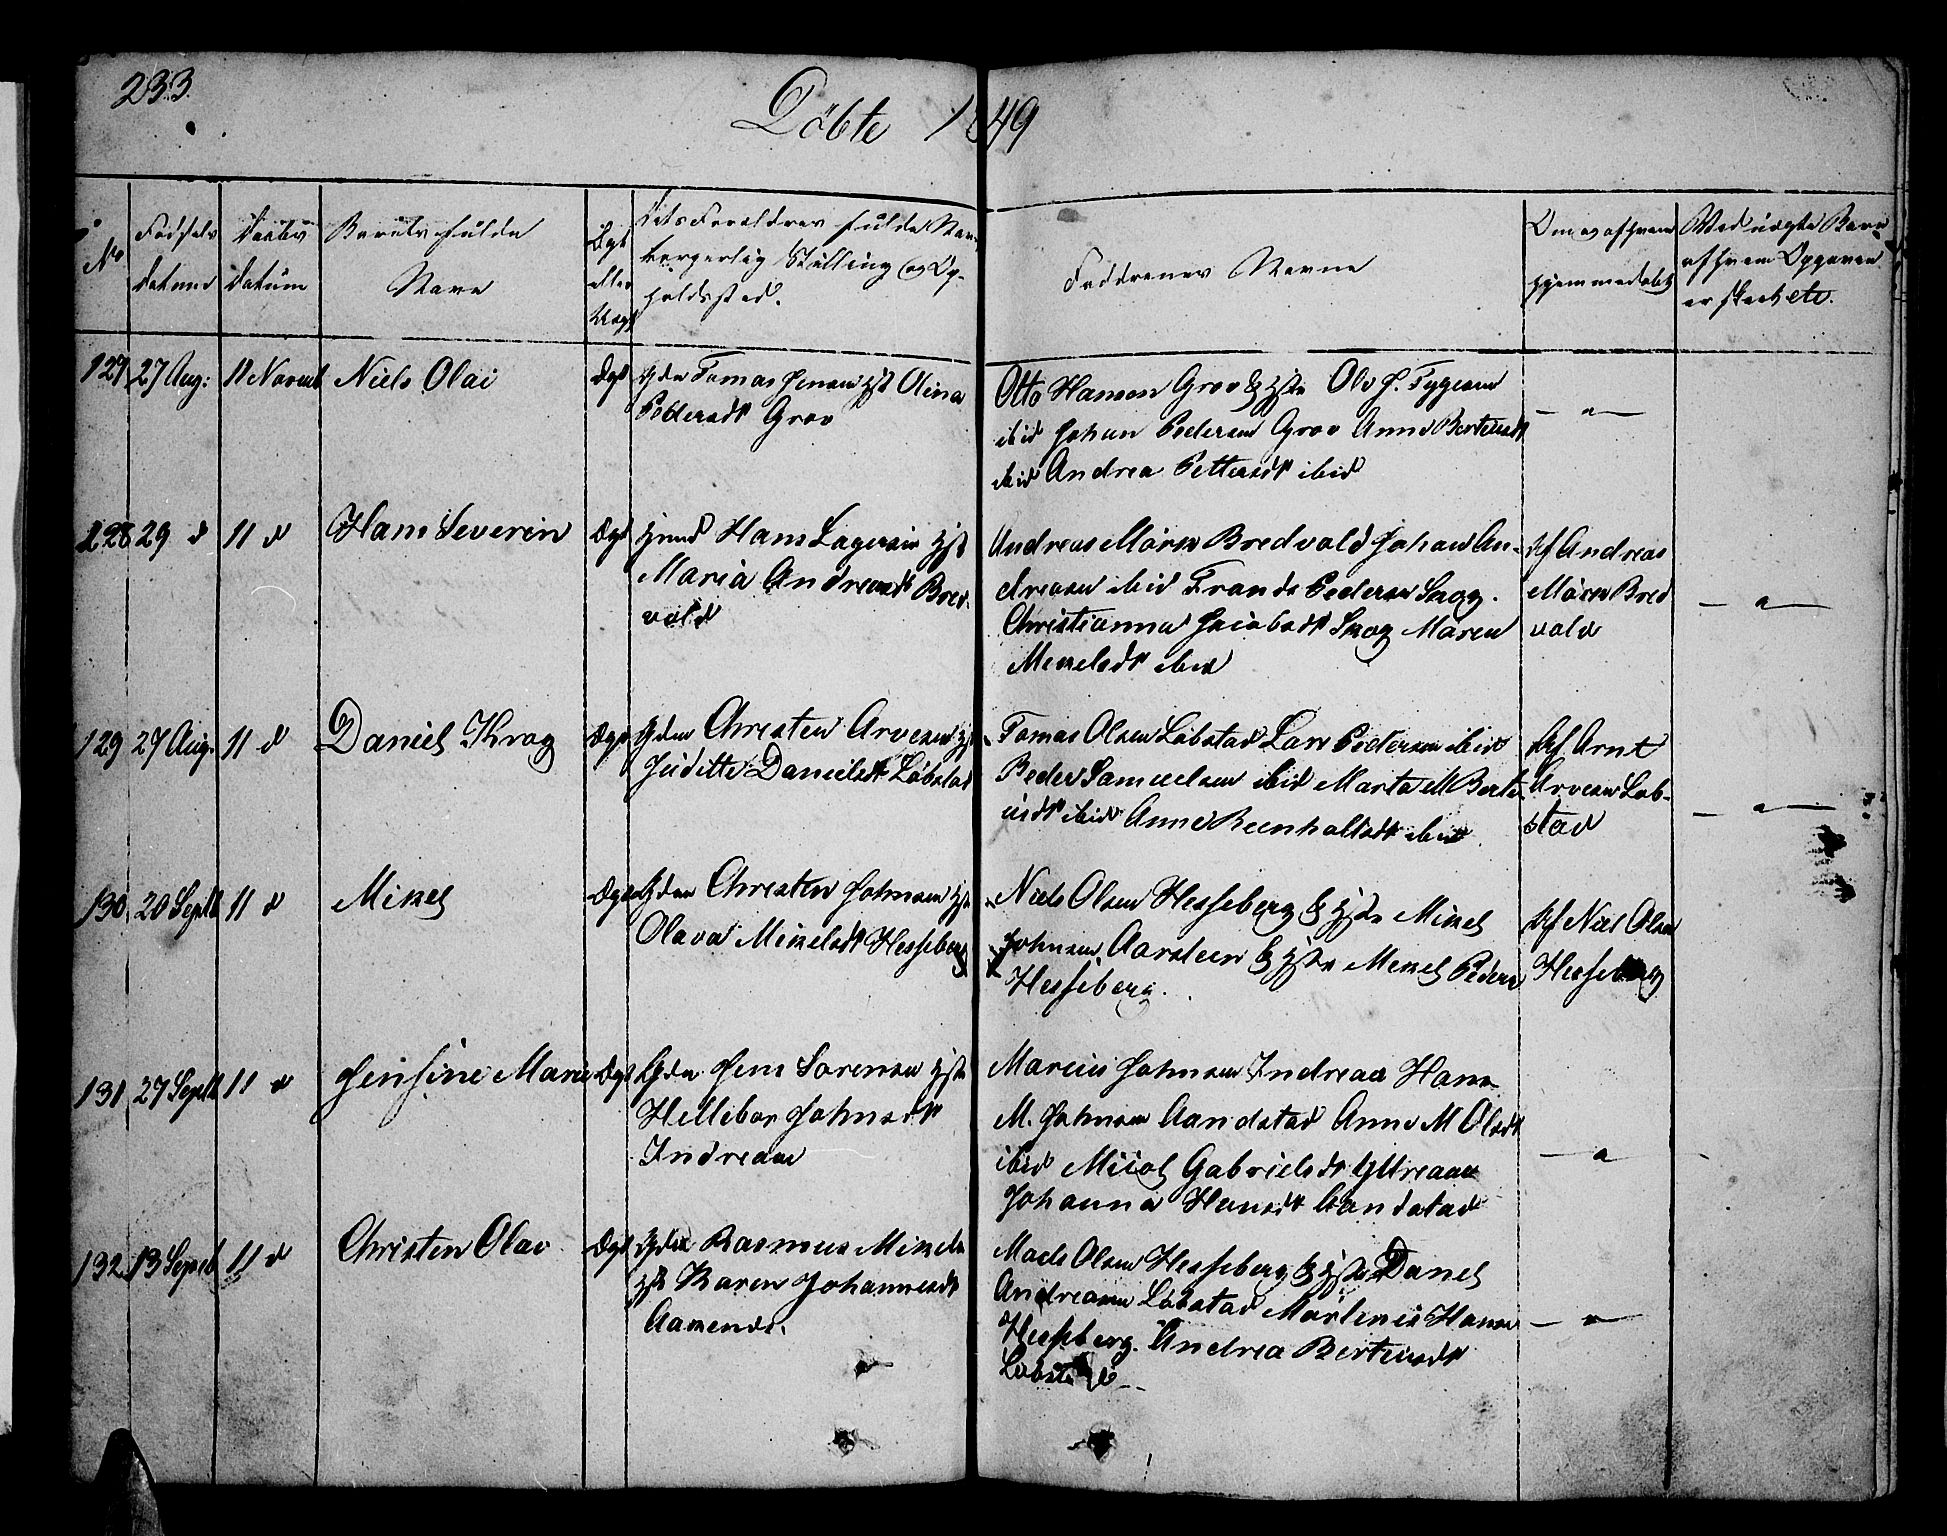 233.
Døbte 1849
No
Fødsels
datum
Daabs
datum
Barnets fulde
Navn
Ægt
eller
Uægt
Dets Forældres fulde Nav-
borgerlig Stilling og Op-
holdssted.
Faddrenes Navne
Om og af hvem
hjemmedøbt
Ved uægte Børn
af hvem Opgaven
er skeet etc.
127 27 Aug: 11 Novemb Niels Olai Ægt Gdm Tomas Jensen Hst Olina
Pedersdt Grov
Otto Hansen Grov & Hstr Ole J. Tygesen
ibid Johan Pedersen Grov Anne Berteusdt
ibid Andrea Pettersdt ibid
128 29 d 11 d Hans Severin Ægt Hmd Hans Lagesen Hst
Maria Andreasdt Bred-
vold
Andreas Mörch Bredvold Johan An-
dreasen ibid Frands Pedersen Skog.
Christianna Jacobsdt Skog Maren
Mekelsdt ibid
Af Andreas
Mörch Bred
vold
129 27 Aug. 11 d Daniel Krog Ægt Gdm Christen Arvesen Hst
Juditte Danielsdt Løbstad
Tomas Olsen Løbstad Lars Pedersen ibid
Peder Samuelsen ibid Marta M Berte-
usdt ibid Anne Reenholtsdt ibid.
Af Arnt
Arvesen Løb-
stad
130 20 Septb 11 d Mikel Ægt Gdm Christen Johnsen Hst
Olava Mikelsdt Hesseberg
Niels Olsen Hesseberg & Hstr Mikel
Johnsen Aarsteen & Hstr Mekel Peders
Hesseberg.
Af Niel Olsen
Hesseberg
131 27 Septb 11 d Jensine Marie Ægt Gdm Jens Sørensen Hst
Hellebor Johnsdt
Indreaae
Marcus Johnsen Indreaae Hans
M. Johnsen Aandstad Anne M Olsdt
ibid Gabrielsdt Yttreaae
Johanna Hansdt Aandstad
132 13 Septb 11 d Christen Olai Ægt Gdm Rasmus Mikels
Hst Karen Johannesdt
Aasends.
Mads Olsen Hesseberg & Hstr Danel
Andreasen Løbstad Martinus Hanse
Hesseberg. Andrea Berteusdt
Løbstad